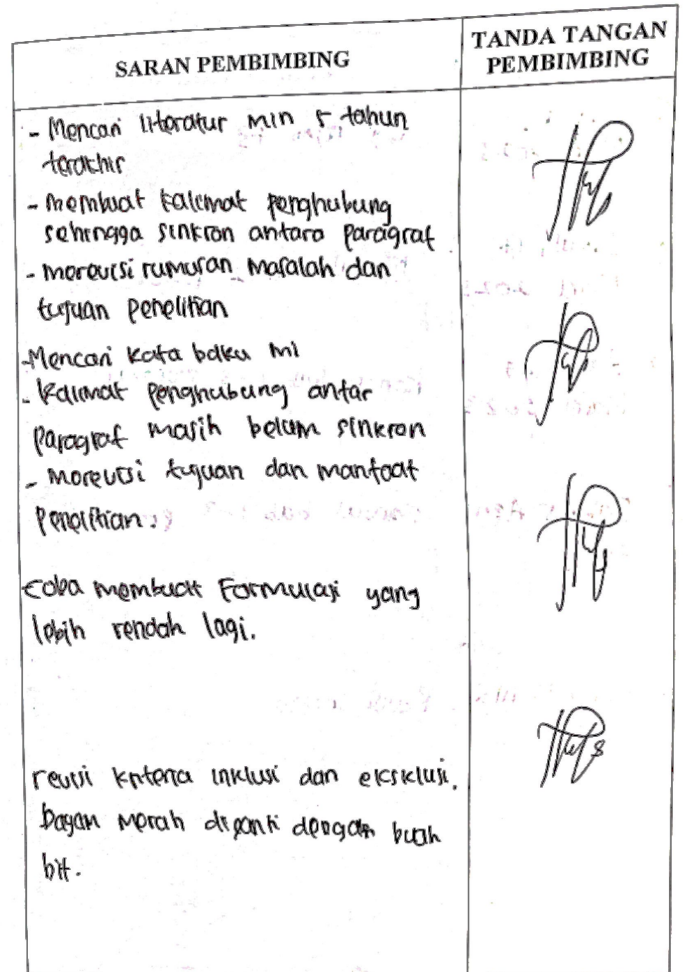 SARAN PEMBIMBING
TANDA TANGAN
PEMBIMBING
- Mencari literatur min 5 tahun
terakhir
- membuat kalimat penghubung
sehingga sinkron antara paragraf
- merevisi rumusan masalah dan
tujuan penelitian
-Mencari kata baku mi
- kalimat penghubung antar
paragraf masih belum sinkron
- merevisi tujuan dan manfaat
penelitian.
coba membuat Formulasi yang
lebih rendah lagi.
revisi kriteria inklusi dan eksklusi.
bayam merah diganti dengan buah
bit.